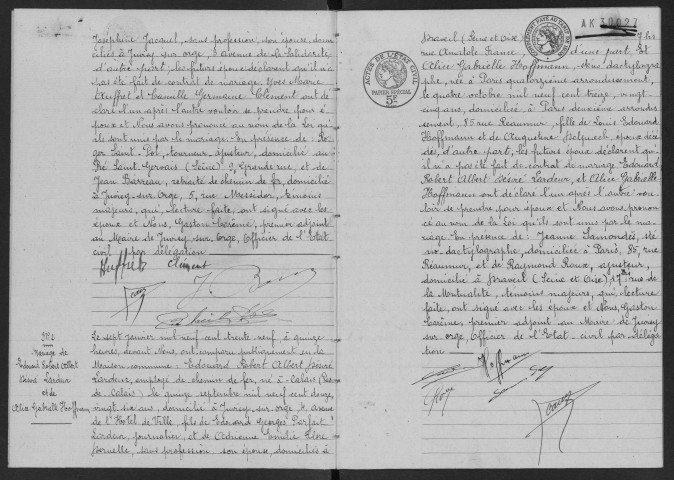 Joséphine Jacquet, sans profession, son épouse, domi-
ciliés à Juvisy-sur-orge, 6, avenue de la Solidarité
d'autre part; les futurs époux déclarent qu'il n'a
pas été fait de contrat de mariage Yves Marie
Auffret et Camille Germaine Clément ont dé-
claré l'un après l'autre vouloir se prendre pour é-
poux et Nous avons prononcé au nom de la Loi qu'
ils sont unis par le mariage. En présence de: Ro-
ger Saint-Pol, tourneur ajusteur, domicilié au
Pré Saint-Gervais (Seine) 9, Grande rue, et de
Jean Barreau, retraité de chemin de fer, domicilié
à Juvisy-sur-Orge, 5, rue Messidor, témoins
majeurs, qui, lecture faite, ont signé avec les
époux et Nous, Gaston Carème, premier adjoint
au Maire de Juvisy-sur-orge, Officier de l'Etat
civil par délégation
Auffret Clément
N° 2
Mariage de
Edouard Robert Albert
Désiré Lardeur
et de
Alice Gabrielle Hoffmann
Le sept janvier mil neuf cent trente neuf, à quinze
heures, devant Nous, ont comparu publiquement en la
Maison commune: Edouard Robert Albert Désiré
Lardeur, employé de chemin de fer, né à Calais (Pas-
de-Calais) le quinze septembre mil neuf cent douze,
vingt-six ans, domicilié à Juvisy-sur-orge, 4, avenue
de l'Hotel de Ville, fils de Edouard Georges Parfait
Lardeur, journalier, et de Adrienne Emilie Flore
sans profession, son épouse, domiciliés à
AK 39027
Draveil (Seine et Oise) 17 bis
rue Anatole France d'une part. Et
Alice Gabrielle Hoffmann, sténo-dactylogra-
phe, née à Paris quatorzième arrondissement,
le quatre octobre mil neuf cent treize, vingt-
cinq ans, domiciliée à Paris deuxième arrondis-
sement, 85 rue Réaumur, fille de Louis Edouard
Hoffmann et de Augustine époux décé-
dés, d'autre part; les futurs époux déclarent qu'
il n'a pas été fait de contrat de mariage Edouard
Robert Albert Désiré Lardeur, et Alice Gabrielle
Hoffmann ont déclaré l'un après l'autre vou-
loir se prendre pour époux et Nous avons pronon-
cé au nom de la Loi qu'ils sont unis par le ma-
riage. En présence de: Jeanne sté-
no-dactylographe, domiciliée à Paris, 85, rue
Réaumur, et de Raymond Roux, ajusteur,
domicilié à Draveil (Seine et Oise) 17 bis rue de
la Mutualité, témoins majeurs, qui, lecture
faite, ont signé avec les époux et Nous, Gaston
Carème, premier adjoint au Maire de Juvisy-
sur-orge, Officier de l'Etat civil par déléga-
tion
Hoffmann
ACTES DE L'ÉTAT CIVIL
PAPIER SPÉCIAL